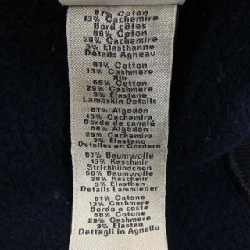 87% Coton
13% Cachemire
Bord côtes
68% Coton
29% Cachemire
3% Elasthanne
Détails Agneau
87% Cotton
13% Cashmere
Rib
68% Cotton
29% Cashmere
3% Elastane
Lambskin Details
87% Algodón
13% Cachemira
Borde de canalé
68% Algodón
29% Cachemira
3% Elastano
Detalles en Cordero
87% Baumwolle
13% Kaschmir
Strickbündchen
68% Baumwolle
29% Kaschmir
3% Elasthan
Lammleder Details
87% Cotone
13% Cashmere
Bordo a coste
68% Cotone
29% Cashmere
3% Elastan
Dettagli in Agnello